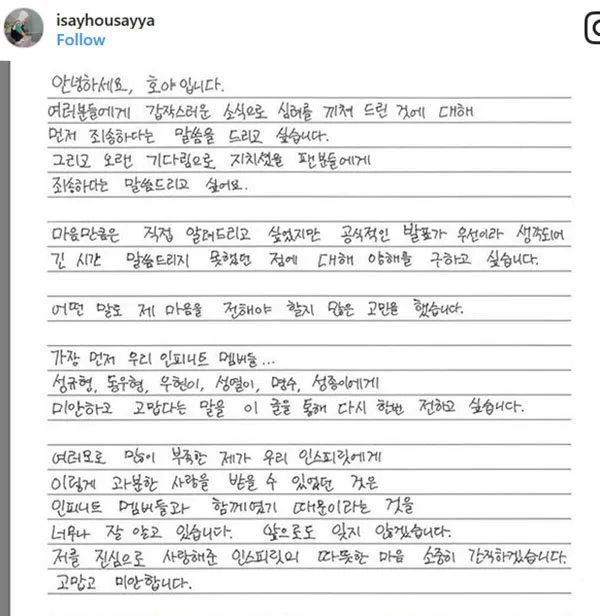 isayhousayya
Follow
안녕하세요, 호야입니다.
여러분들에게 갑작스러운 소식으로 심려를 끼쳐 드린 것에 대해
먼저 죄송하다는 말씀을 드리고 싶습니다.
그리고 오랜 기다림으로 지치셨을 팬분들에게
죄송하다는 말씀드리고 싶어요.
마음만큼은 직접 알려드리고 싶었지만 공식적인 발표가 우선이라 생각되어
긴 시간 말씀드리지 못했던 점에 대해 양해를 구하고 싶습니다.
어떤 말로 제 마음을 전해야 할지 많은 고민을 했습니다.
가장 먼저 우리 인피니트 멤버들...
성규형, 동우형, 우현이, 성열이, 명수, 성종이에게
미안하고 고맙다는 말을 이 글을 통해 다시 한번 전하고 싶습니다.
여러모로 많이 부족한 제가 우리 인스피릿에게
이렇게 과분한 사랑을 받을 수 있었던 것은
인피니트 멤버들과 함께였기 때문이라는 것을
너무나 잘 알고 있습니다. 앞으로도 잊지 않겠습니다.
저를 진심으로 사랑해준 인스피릿의 따뜻한 마음 소중히 간직하겠습니다.
고맙고 미안합니다.